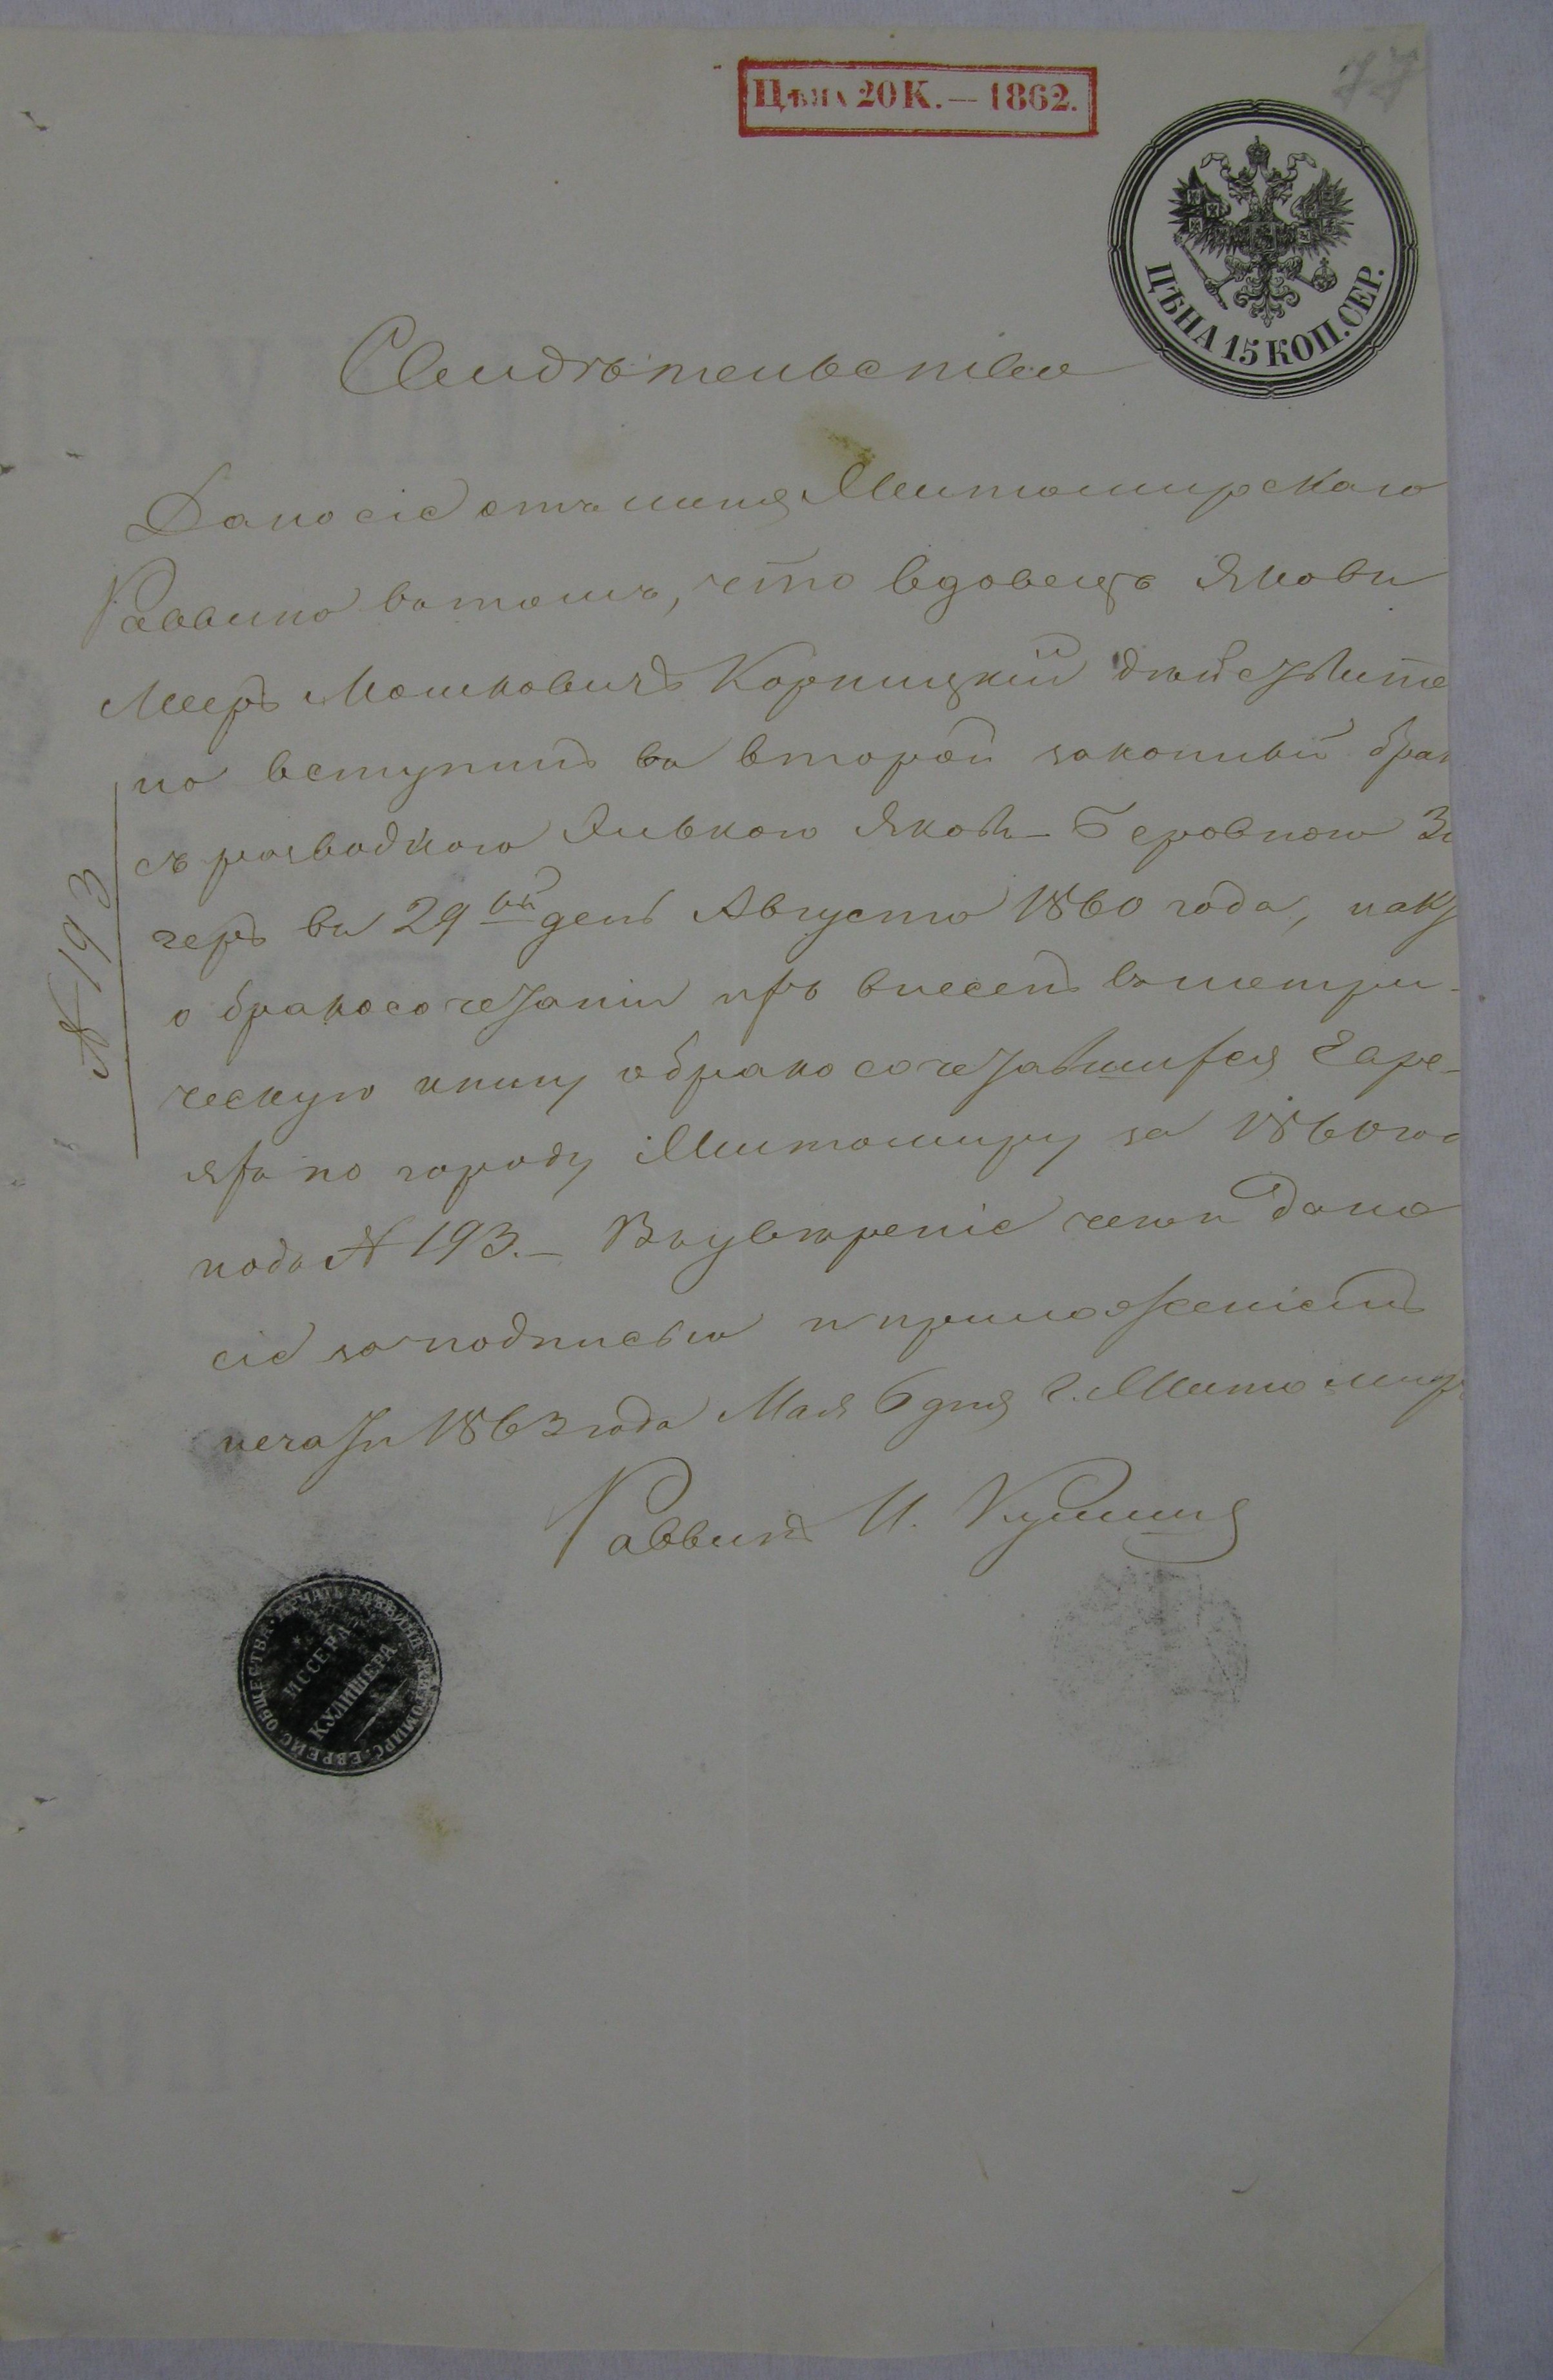 77
Цѣна 20 К. — 1862.
ЦѢНА 15 КОП. СЕР.
Свидѣтельство
Дано сіе отъ меня Житомирскаго
Раввина въ томъ, что вдовецъ Яковъ
Мееръ Мошковичъ Корницкій дѣйствите
но вступилъ въ второй законный брак
съ разводкою Зивькою Яковъ-Беровною
черъ въ 29ый день Августа 1860 года, и актъ
о бракосочетаніи ихъ внесенъ въ метри-
ческую книгу о бракосочетавшихся Евре-
яхъ по городу Житомиру за 1860 год
подъ № 193. — Въ увѣреніе чего и дано
сіе за подписью и приложеніемъ
печати 1863 года Мая 6 дня г. Житомир
Раввинъ И. Кулишеръ
№ 193
ПЕЧАТЬ РАВВИНА ЖИТОМИРС. ЕВРЕЙС. ОБЩЕСТВА
ИССЕРА
КУЛИШЕРА